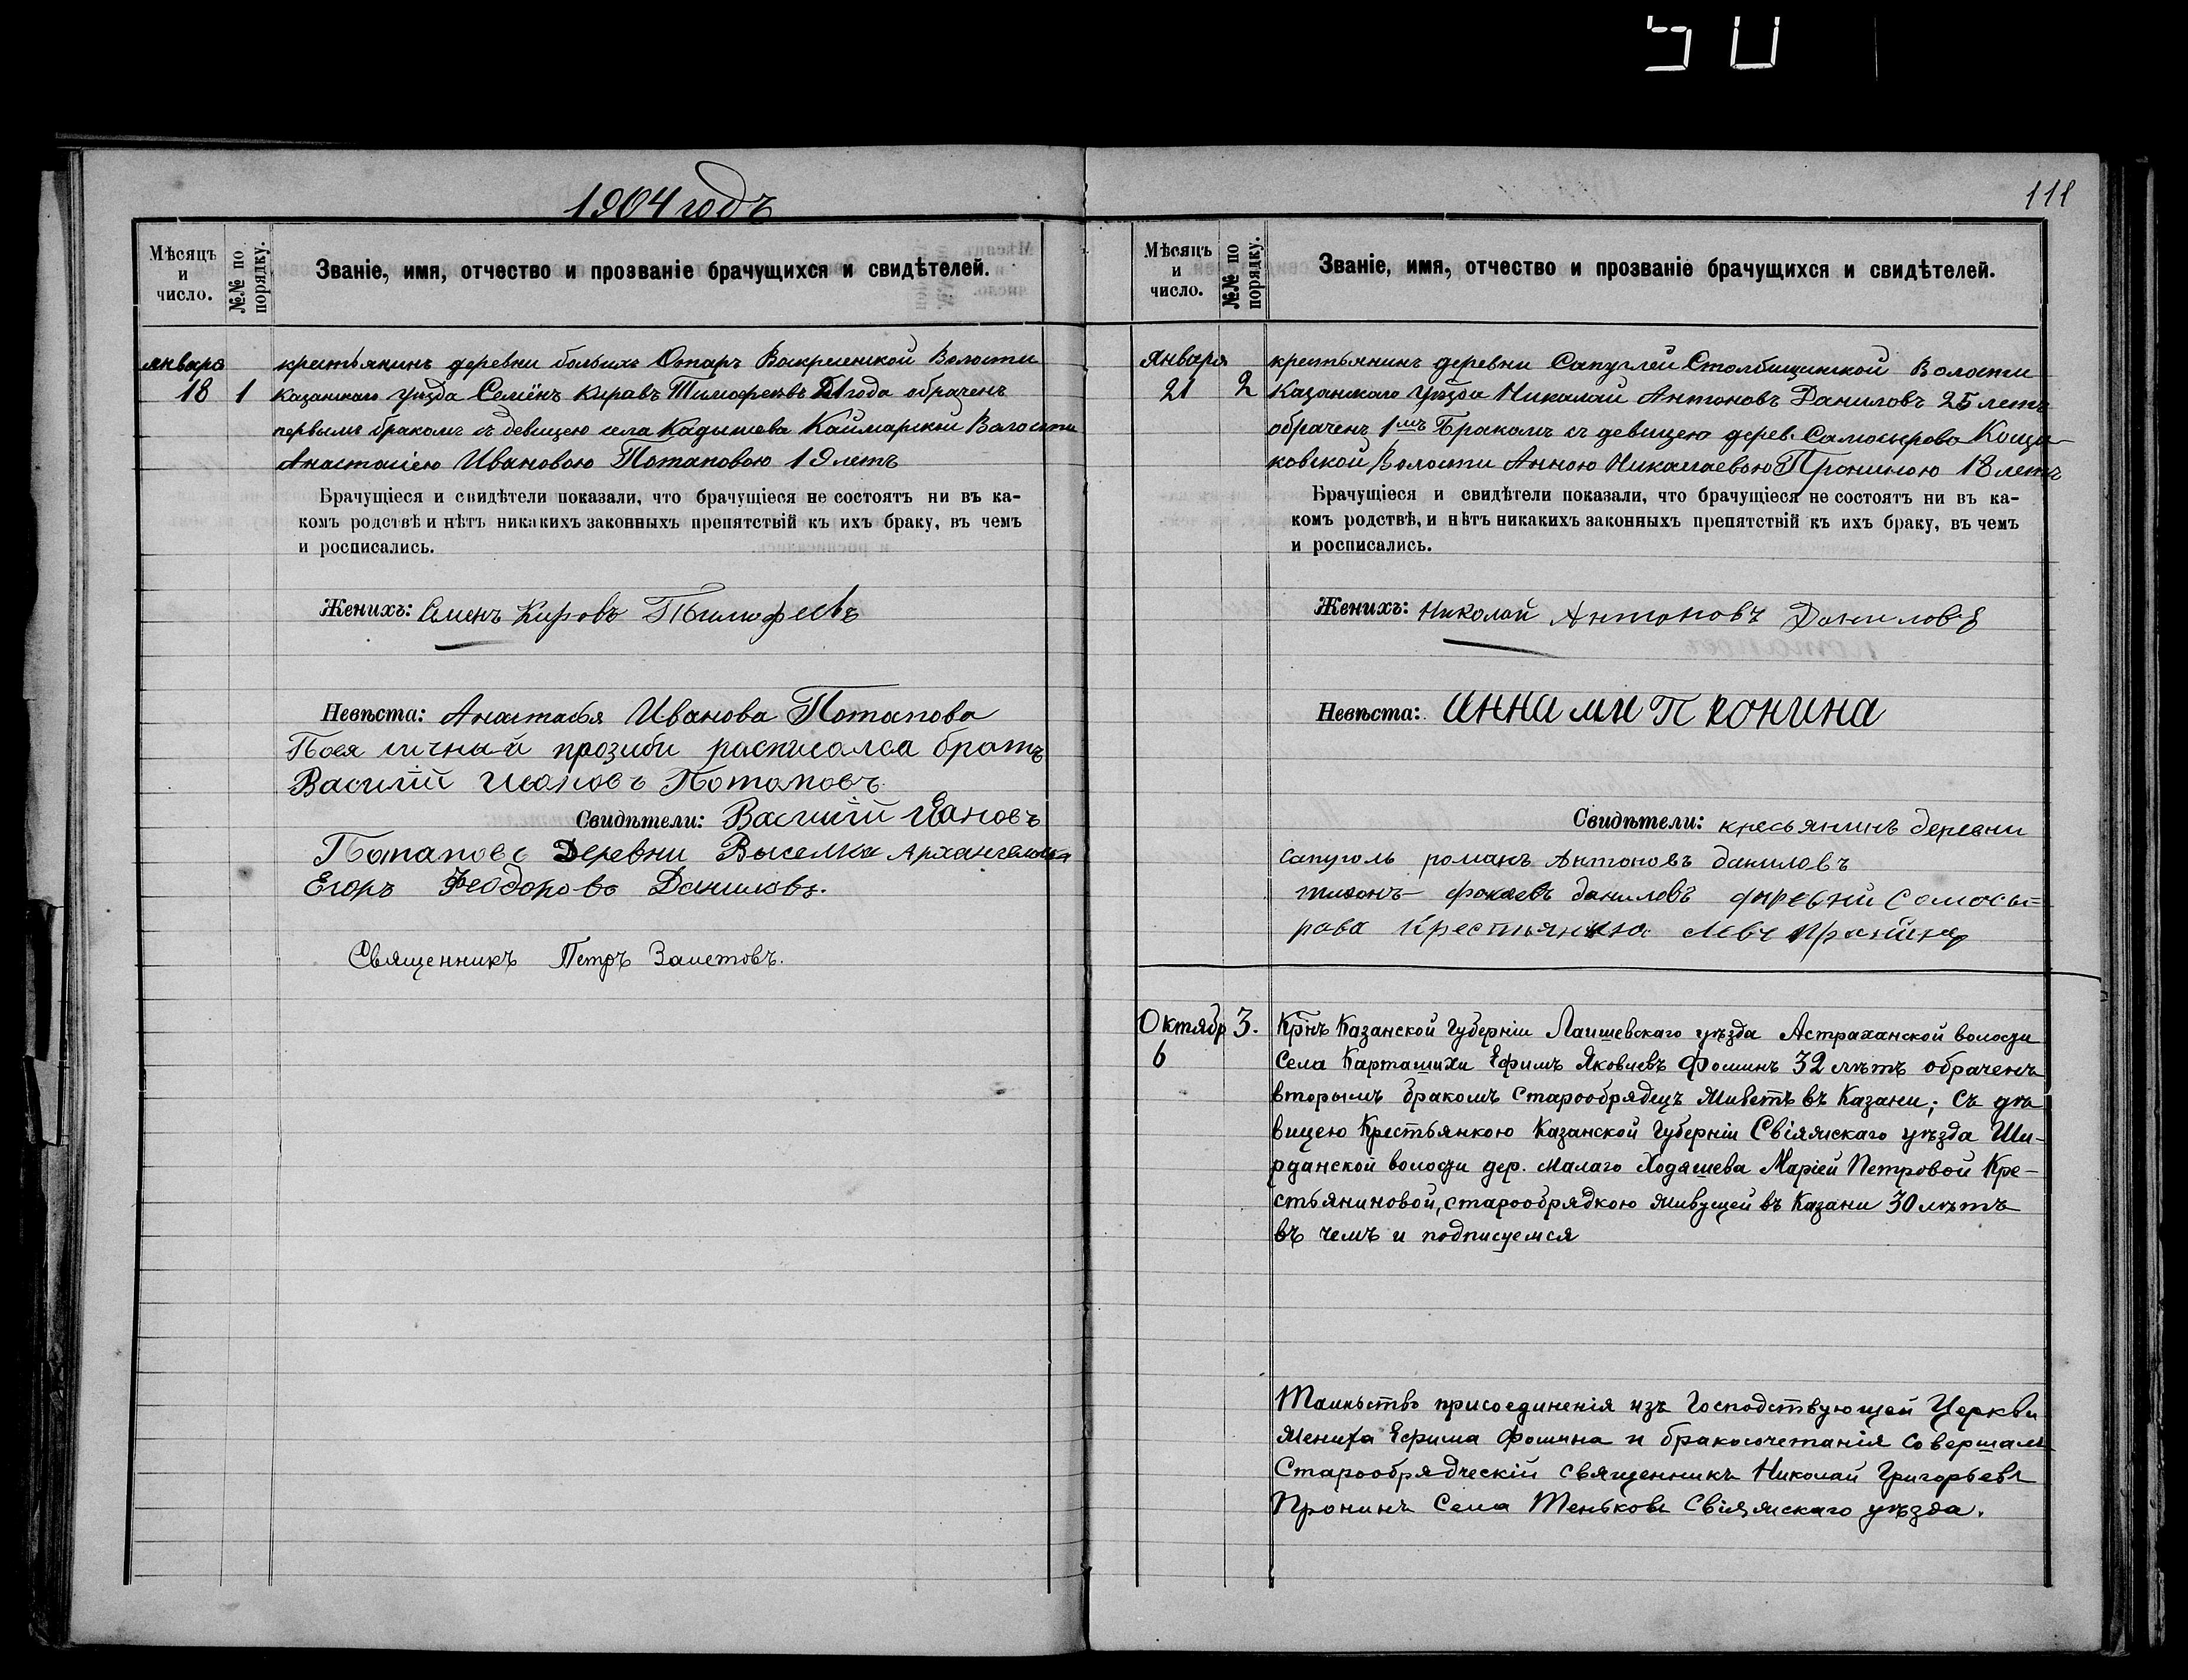 1904 годъ
Мѣсяцъ и число.
№№ по порядку.
Званіе, имя, отчество и прозваніе брачущихся и свидѣтелей.
января
18 1
крестьянинъ деревни большихъ Отаръ Воскресенской Волости
Казанскаго уѣзда Семёнъ Киравъ Тимофеевъ 21 года обраченъ
первымъ бракомъ съ девицею села Кадышева Каймарской Волости
Анастасіею Ивановою Потаповою 19 летъ
Брачущіеся и свидѣтели показали, что брачущіеся не состоятъ ни въ ка-
комъ родствѣ и нѣтъ никакихъ законныхъ препятствій къ ихъ браку, въ чемъ
и росписались.
Женихъ: Семенъ Кировъ Тимофеевъ
Невѣста: Анастасья Иванова Потапова
Поея личнай прозиби расписалса братъ
Василій Ивановъ Потаповъ
Свидѣтели: Василій Ивановъ
Потаповъ Деревни Выселка Архангельска
Егоръ Феодоровъ Даниловъ.
Священникъ Петръ Залетовъ.
111
Мѣсяцъ и число.
№№ по порядку.
Званіе, имя, отчество и прозваніе брачущихся и свидѣтелей.
Января
21 2
крестьянинъ деревни Сапуглей Столбищинской Волости
Казанскаго уѣзда Николай Антоновъ Даниловъ 25 летъ
обраченъ 1мъ Бракомъ съ девицею дерев. Самосырово Коща-
ковской Волости Анною Николаевою Прониною 18 летъ
Брачущіеся и свидѣтели показали, что брачущіеся не состоятъ ни въ ка-
комъ родствѣ, и нѣтъ никакихъ законныхъ препятствій къ ихъ браку, въ чемъ
и росписались.
Женихъ: Николай Антоновъ Даниловъ
Невѣста: Инна ми Пронина
Свидѣтели: кресьянинъ деревни
сапуголь романъ Антоновъ даниловъ
тихонъ фокаевъ даниловъ диревни Самосы=
рова Крестьянина Левъ Пронинъ
Октябр 3.
6
Крнъ Казанской Губерніи Лаишевскаго уѣзда Астраханской волости
Села Карташихи Ефимъ Яковлевъ Фоминъ 32 лѣтъ обраченъ
вторымъ бракомъ Старообрядецъ живетъ въ Казани; Съ дѣ
вицею Крестьянкою Казанской Губерніи Свіяжскаго уѣзда Ши-
рданской волости дер. Малаго Ходяшева Маріей Петровой Кре-
стьяниновой, старообрядкою живущей въ Казани 30 лѣтъ
въ чемъ и подписуемся
Таинство присоединенія изъ Господствующей Церкви
Жениха Ефима Фомина и бракосочетанія Совершалъ
Старообрядческій священникъ Николай Григорьевъ
Пронинъ Села Теньковъ Свіяжскаго уѣзда.